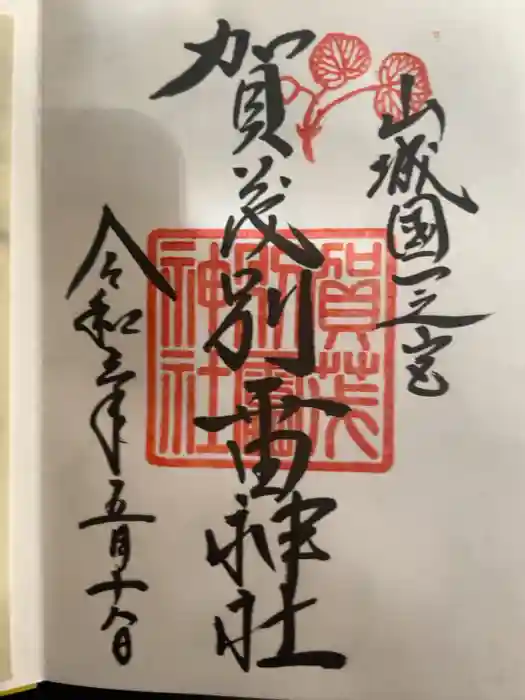 山城国一之宮
賀茂別雷神社
令和三年五月十八日
賀茂
別雷
神社